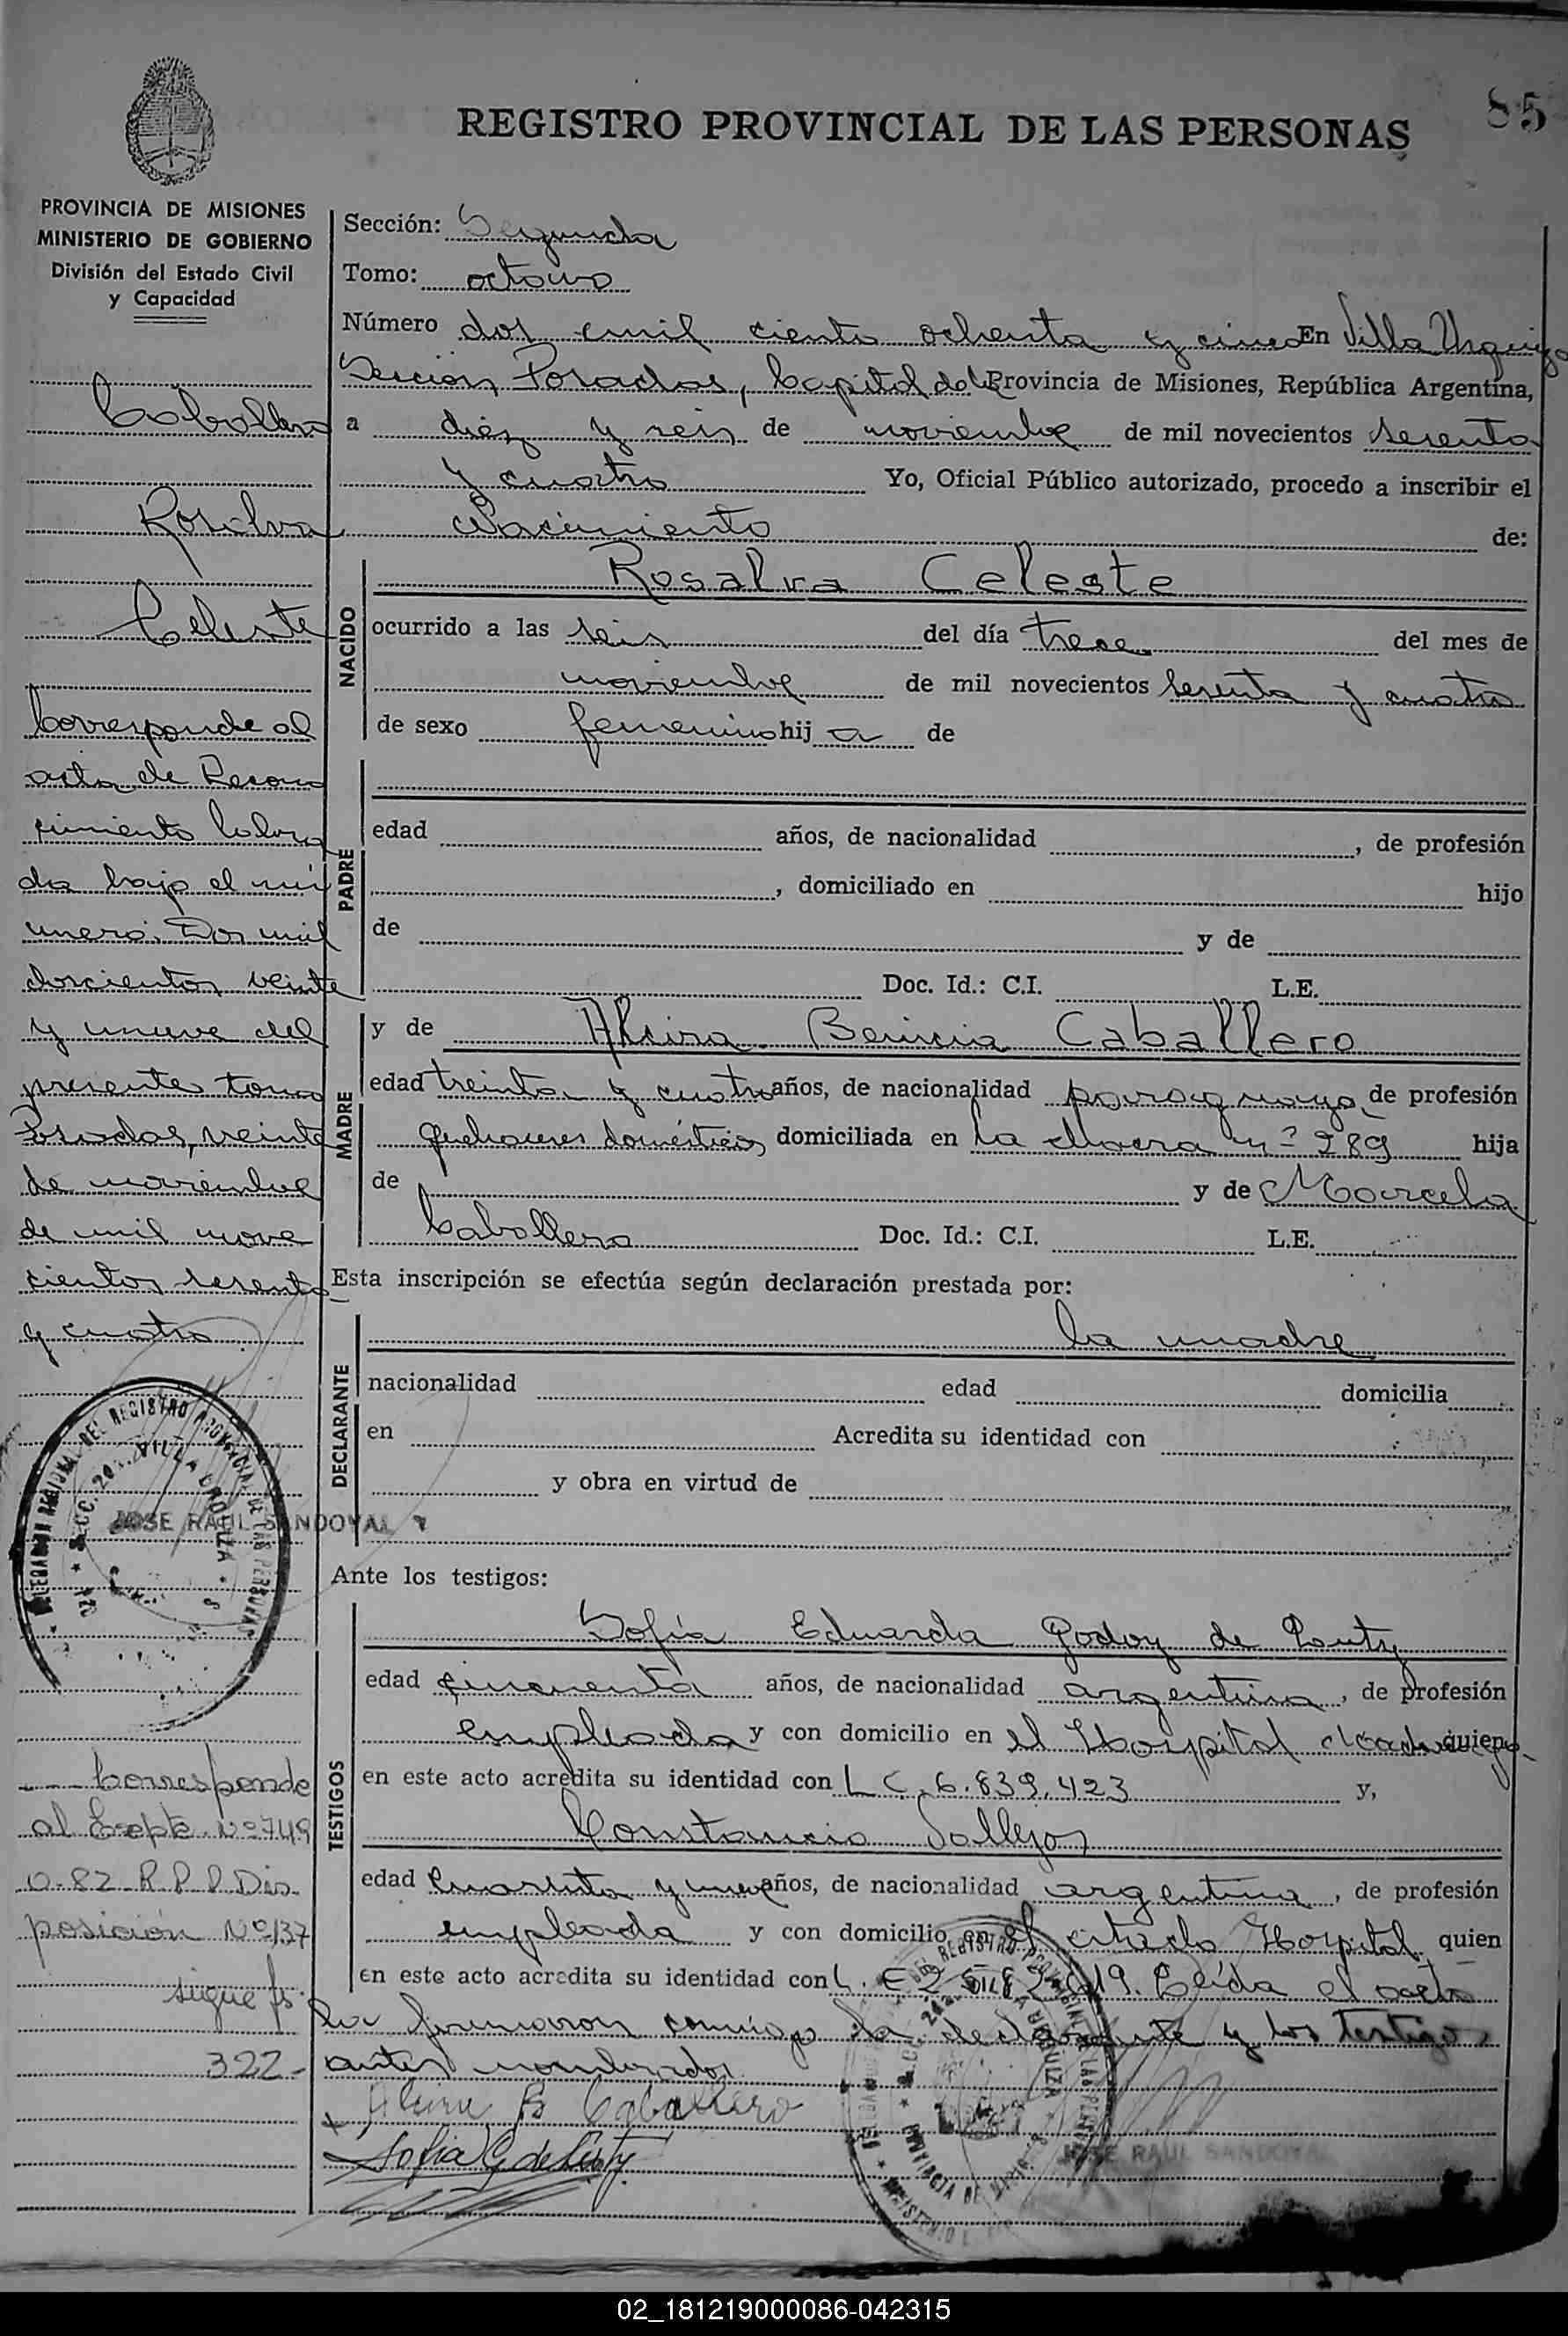 85
REGISTRO PROVINCIAL DE LAS PERSONAS
PROVINCIA DE MISIONES
MINISTERIO DE GOBIERNO
División del Estado Civil
y Capacidad
Caballero
Rosalva
Celeste
Corresponde al
acta de Recono
cimiento labra
da bajo el nú
mero: Dos mil
doscientos veinte
y nueve del
presente tomo
Posadas, veinte
de noviembre
de mil nove
cientos sesenta
y cuatro
JOSE RAUL SANDOVAL
Corresponde
al Expte. Nº 749
0-82 R.P.P Dis
posición Nº 137
sigue fs.
322-
Sección: Segunda
Tomo: octavo
Número dos mil ciento ochenta y cinco En Villa Urquiza
Sección Posadas, Capital de la Provincia de Misiones, República Argentina,
a diez y seis de noviembre de mil novecientos sesenta
y cuatro Yo, Oficial Público autorizado, procedo a inscribir el
Nacimiento de:
NACIDO
Rosalva Celeste
ocurrido a las seis del día trece del mes de
noviembre de mil novecientos sesenta y cuatro
de sexo femenino hij a de
PADRE
edad años, de nacionalidad , de profesión
, domiciliado en hijo
de y de
Doc. Id.: C.I. L.E.
MADRE
y de Alcira Benicia Caballero
edad treinta y cuatro años, de nacionalidad paraguaya de profesión
quehaceres domésticos domiciliada en la chacra nº 289 hija
de y de Marcela
Caballero Doc. Id.: C.I. L.E.
Esta inscripción se efectúa según declaración prestada por:
DECLARANTE
la madre
nacionalidad edad domicilia
en Acredita su identidad con
y obra en virtud de
Ante los testigos:
TESTIGOS
Sofía Eduarda Godoy de
edad cincuenta años, de nacionalidad argentina, de profesión
empleada y con domicilio en el Hospital Madariaga quien
en este acto acredita su identidad con L C. 6.839.423 y,
Constancia Vallejos
edad Cuarenta y nueve años, de nacionalidad argentina, de profesión
empleada y con domicilio en el citado Hospital quien
en este acto acredita su identidad con L. Leída el acta
la firmaron conmigo la declarante y los testigos
antes nombrados
Alcira B Caballero
Sofia G de
JOSE RAUL SANDOVAL
02_181219000086-042315